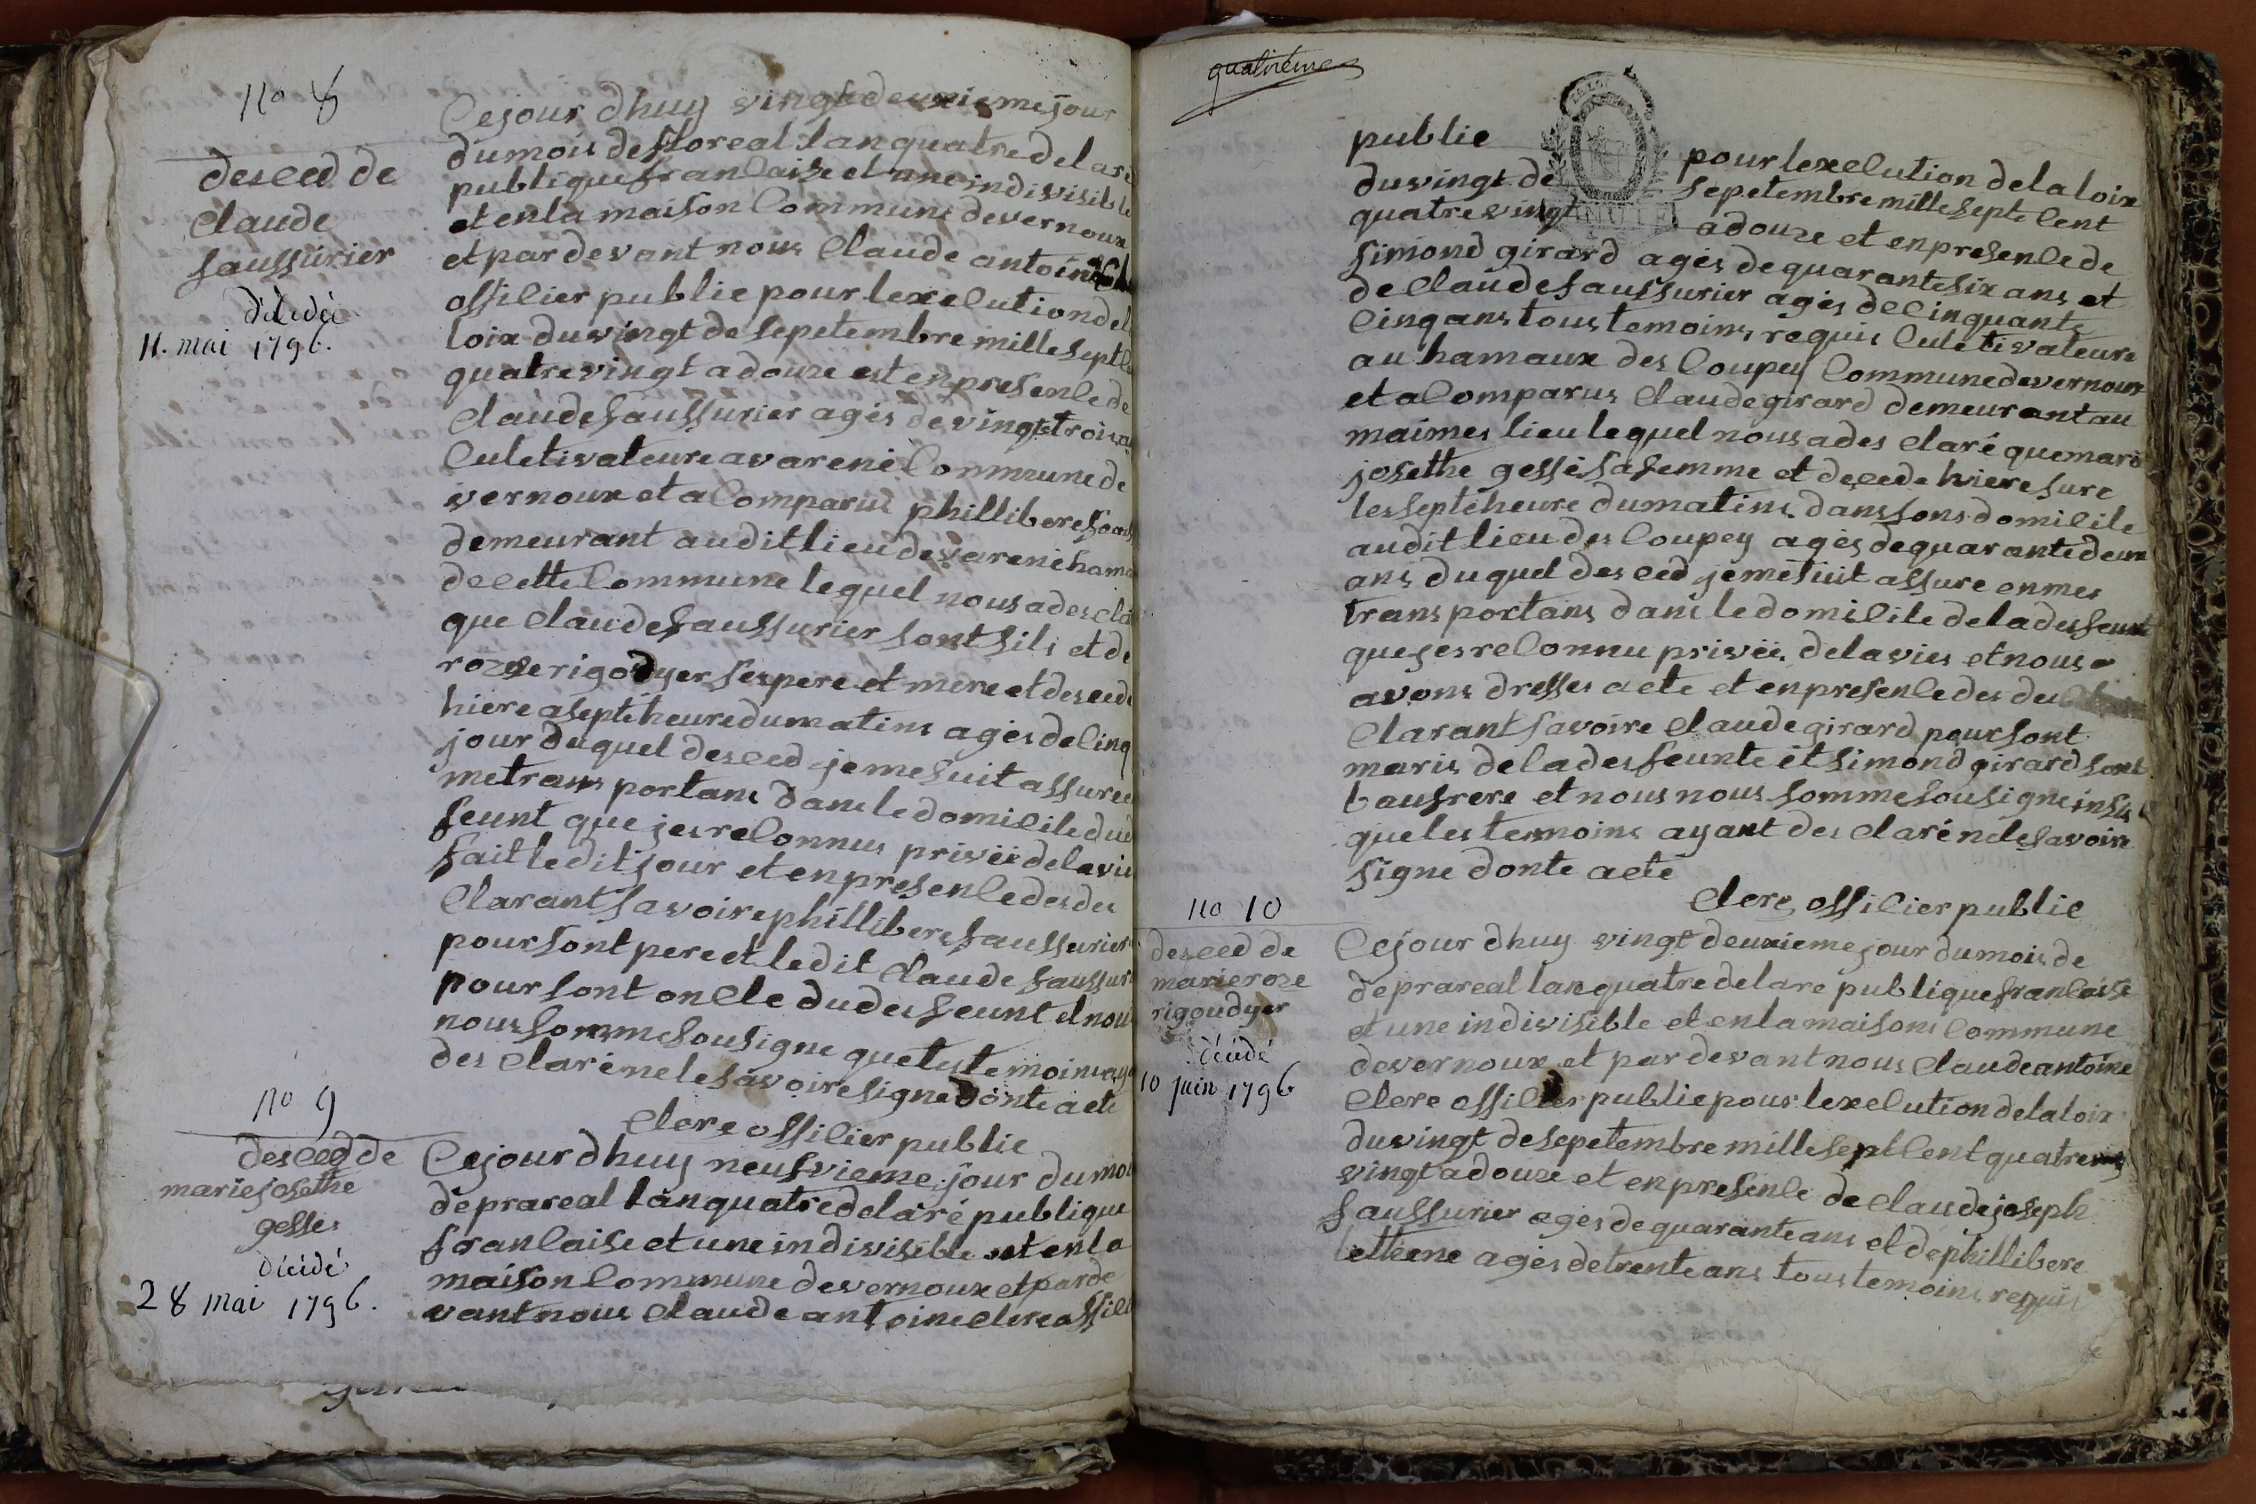 no 8
deseed de
Claude
saussurier
décédé
11. mai 1796.
Cejour dhuy vingt deuxieme jour
dumois de floreal lan quatre de la re
publique francaise et une indivisible
et en la maison Commune de vernoux
et par devant nous Claude antoine
officier public pour lexecution de l
loix du vingt de sepetembre mille sept
quatre vingt a douze et en presence de
Claude saussurier agés de vingt trois
Culetivateure a varene Commune de
vernoux et a Comparus phillibere
demeurant audit lieu de varene hama
de cette Commune lequel nous a des cla
que Claude saussurier sont fils et de
roze rigodyer ses pere et mere et deseede
hiere a septe heure dumatins agés de cinq
jour duquel deseed je me suit assuree
me trans portant dans le domicile du
feunt que jes reconnus privée de la vie
fait ledit jour et en presence des des
Clarant savoire phillibere saussurier
pour sont pere et ledit Claude saussur
pour sont oncle du des feunt et nou
nous somme sousigne que les temoins ay
des claré ne le savoire signe donte acte
Clere officier public
no 9
deseed de
marie josethe
gesse
décédé
28 mai 1796.
Cejour dhuy neufvieme jour du moi
de prareal lan quatre de la re publique
francaise et une indivisible et en la
maison Commune de vernoux et parde
vant nous Claude antoine clere offici
quatriéme
public pour lexecution de la loix
du vingt de sepetembre mille septe cent
quatre vingt a douze et en presence de
simond girard agés de quarante six ans et
de Claude saussurier agés de cinquante
cinq ans tous temoins requis Culetivateure
au hamaux des Coupey Commune de vernoux
et a Comparus Claude girard demeurant au
maimes lieu lequel nous a des claré que mari
josethe gesse sa femme et decede hiere sure
les septe heure dumatins dans sons domicile
audit lieu des Coupey agés de quarante deux
ans duquel deseed je me suit assure en mes
trans portans dans le domicile de la des feunte
que jes reconnu privée de la vies et nous
avons dresses acte et en presence des de
Clarant savoire Claude girard pour sont
maris de la des feunte et simond girard sont
baufrere et nous nous somme sousigne
que les temoins ayant des claré ne le savoire
signe donte acte
Clere officier public
no 10
deseed de
marie roze
rigoudyer
décédé
10 juin 1796
Cejour dhuy vingt deuxieme jour du mois de
de prareal lan quatre de la re publique francaise
et une indivisible et en la maisons Commune
de vernoux et par devant nous Claude antoine
Clere officier public pour lexecution de la loix
du vingt de sepetembre mille sept cent quatre
vingt a douze et en presence de Claude joseph
saussurier agés de quarante ans et de phillibere
agés de trente ans tous temoins requis